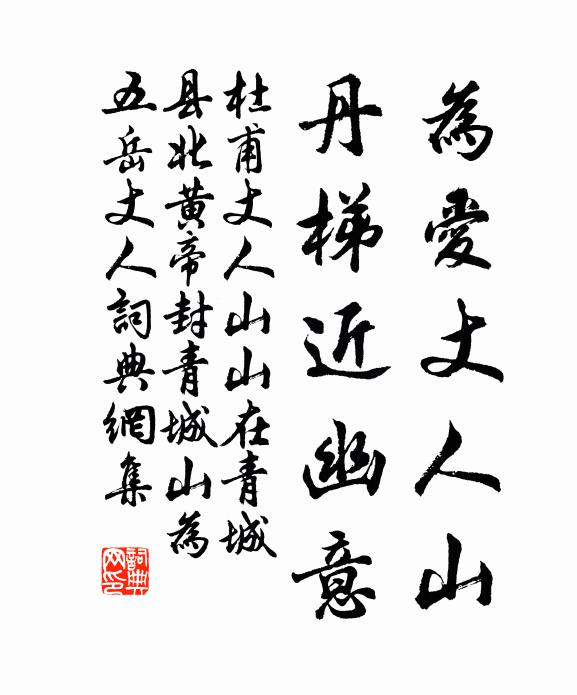 為愛丈人山
丹梯近幽意
杜甫丈人山山在青城
县北黄帝封青城山為
五岳丈人詞典網集
詞典网印